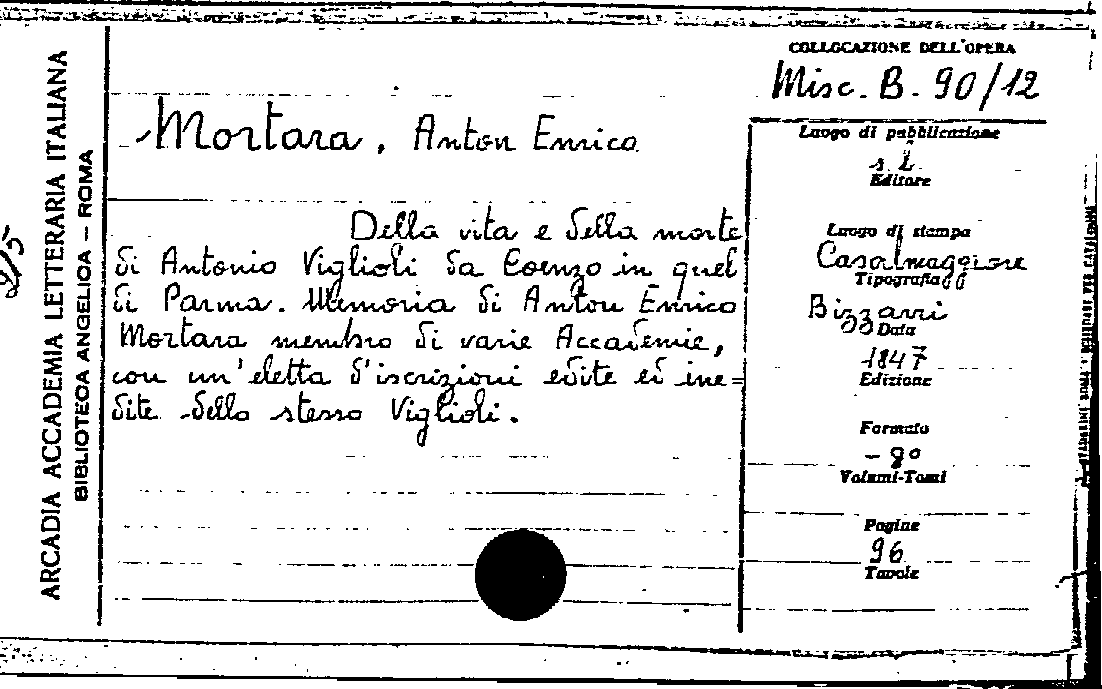 ARCADIA ACCADEMIA LETTERARIA ITALIANA
BIBLIOTECA ANGELICA – ROMA
COLLOCAZIONE DELL'OPERA
Misc. B. 90/12
Mortara, Anton Enrico
Della vita e della morte
di Antonio Viglioli da Coenzo in quel
di Parma. Memoria di Anton Enrico
Mortara membro di varie Accademie,
con un'eletta d'iscrizioni edite ed ine=
dite dello stesso Viglioli.
Luogo di pubblicazione
s. l.
Editore
Luogo di stampa
Casalmaggiore
Tipografia
Bizzarri
Data
1847
Edizione
Formato
- 8°
Volumi-Tomi
Pagine
96
Tavole